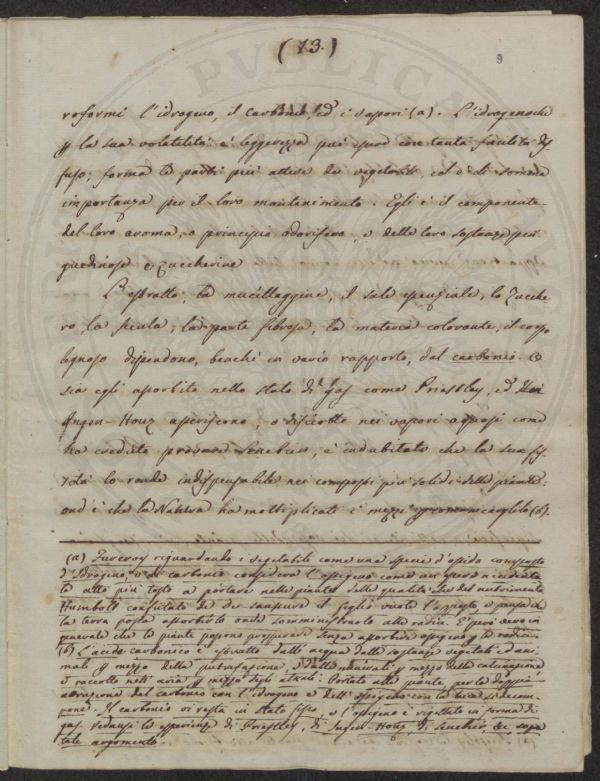 (13.)
9
PUBLICA
roformi l'idrogeno, il carbonio, ed i vapori (a). L'idrogeno che
la sua volatilità e leggerezza può con tanta facilità
fuso; forma le parti più attive dei vegetabili, ed è di somma
importanza per il loro mantenimento. Egli è il componente
del loro aroma, o principio odorifero, e delle loro sostanze pin
guedinose e Zuccherine
L'estratto, la mucillaggine, il sale essenziale, lo Zucche
ro, la fecula, la parte fibrosa, la materia colorante, il corpo
legnoso dipendono, benchè in vario rapporto, dal carbonio. O
sia egli assorbito nello stato di Gas come Priestley, ed
Ingen-Houz asseriscono, o disciolto nei vapori aquosi come
ha creduto provare Senebier, è indubitato che la sua fis
sità lo rende indispensabile nei composti più solidi delle piante:
ond'è che la Natura ha moltiplicati i mezzi (b).
(a) Furcroy riguardando i vegetabili come una specie d'ossido composto
d'Idrogeno e di carbonio considera l'ossigeno come
atto più tosto a portare nelle piante delle qualità del nutrimento
Humbolt confutato da de Saussure il figlio vuole l'appoggio e pensa che
la terra possa assorbirlo onde somministrarlo alle radici. È però vero in
generale che le piante possono prosperare senza assorbire ossigeno le radici.
(b) L'acido carbonico è estratto dall'acqua dalle sostanze vegetali ed ani
mali mezzo della putrefazione, dalle minerali mezzo della calcinazione
e raccolto nell'aria mezzo degli alcali: Portato alle piante per la doppia
attrazione del carbonio con l'idrogeno e dell'ossigeno con la luce si decom
pone: Il carbonio vi resta in stato fisso, e l'ossigeno è rigettato in forma di
gas. Vedansi le esperienze di Priestley, di Ingen-Houz, di Senebier, &c sopra
tale argomento.